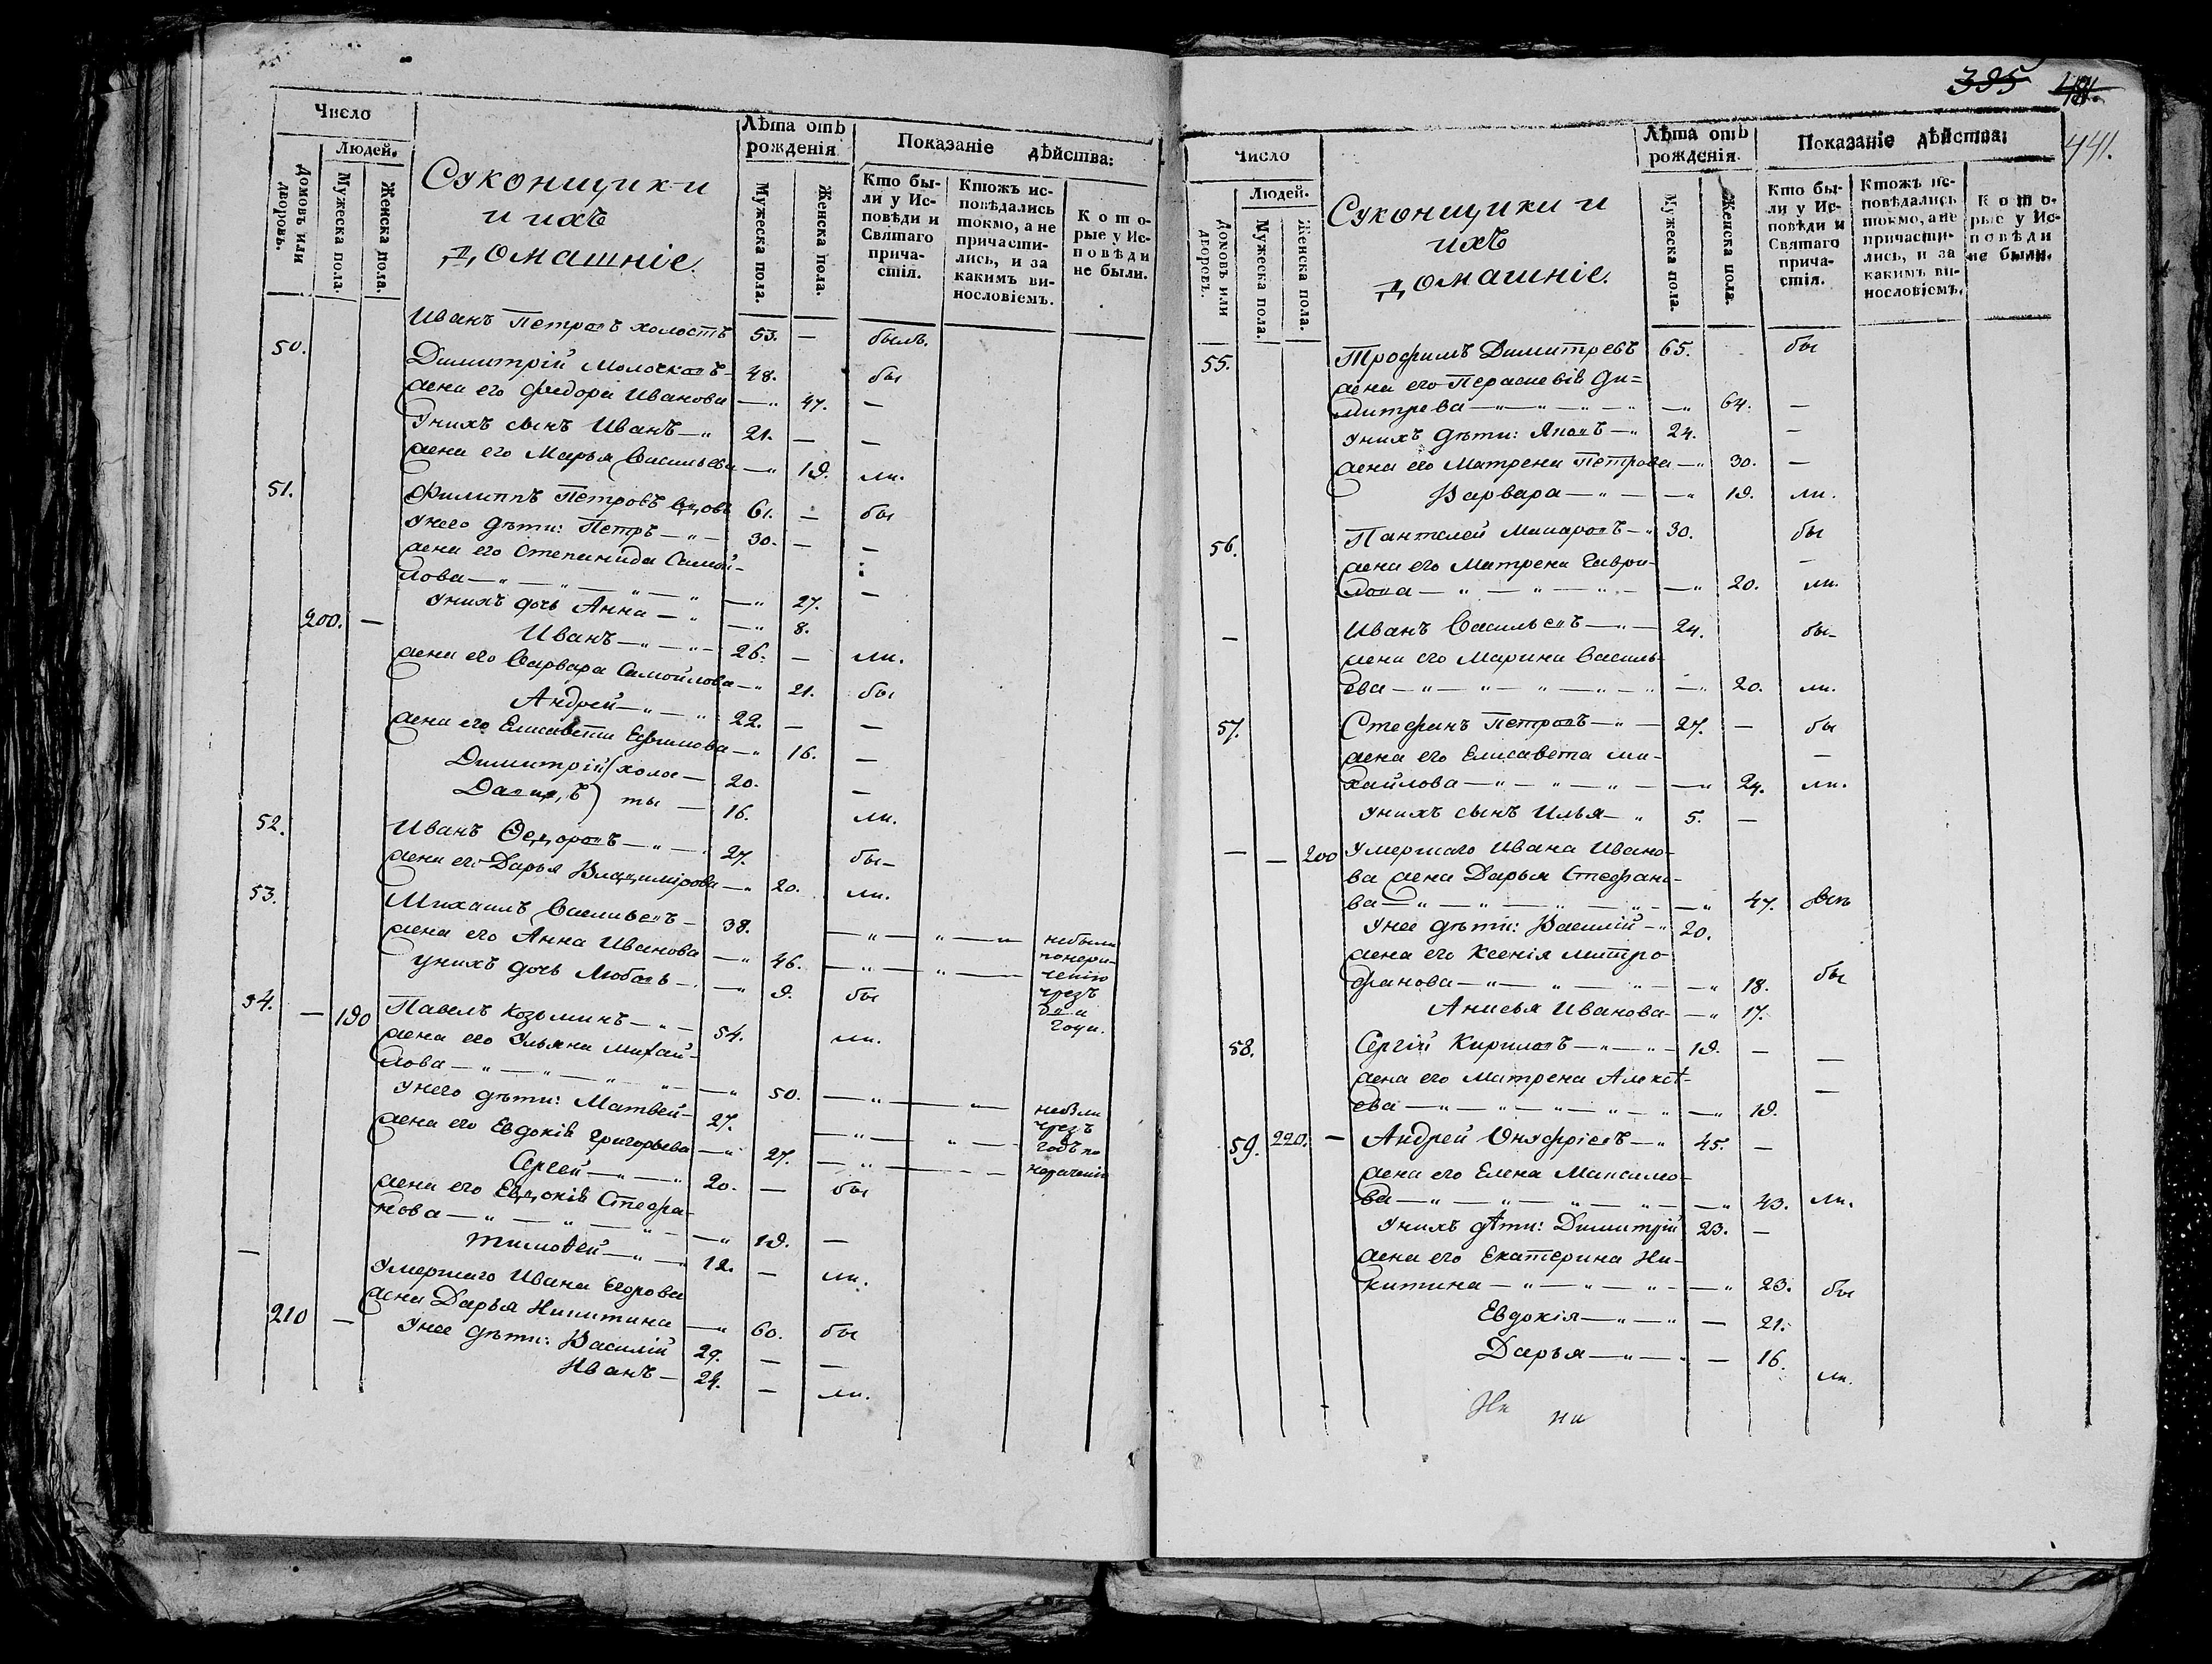 Число
Людей.
Домовъ или дворовъ.
Мужеска пола.
Женска пола.
Суконщики
и ихъ
домашніе.
Лѣта отъ рожденія
Мужеска пола.
Женска пола.
Показаніе дѣйства:
Кто были у Исповѣди и Святаго причастія.
Ктожъ исповѣдались токмо, а не причастились, и за какимъ винословіемъ.
Которые у Исповѣди не были.
Иванъ Петровъ холостъ 53. — былъ.
50. Димитрій Молочковъ — 48. бы
жена его Федора Иванова — 47. —
У нихъ сынъ Иванъ — 21. — —
жена его Марья Васильева — 19. ли.
51. Филиппъ Петровъ вдовъ 61. — бы
У него дѣти: Петръ — 30. — —
жена его Степанида Самой-
лова — 27. —
У нихъ дочь Анна — 8.
200. — Иванъ — 26. — ли.
жена его Варвара Самойлова — 21. бы
Андрей — 22. — —
жена его Елисавета Ефимова — 16. —
Димитрій холос — 20. —
Давидъ ты — 16. ли.
52. Иванъ Ѳедоровъ — 27. бы —
жена его Дарья Владимірова — 20. ли.
53. Михаилъ Васильевъ — 38. — небыли
жена его Анна Иванова — 46. — понера-
ченію
у нихъ дочь Любовь — 9. бы чрезъ
два
года.
54. — 190 Павелъ Козьминъ — 54. ли.
жена его Ульяна Михай-
лова — 50. — небыли
У него дѣти: Матвей — 27. — чрезъ
жена его Евдокія Григорьева — 27. — годъ по
нераченію
Сергей — 20. — бы
жена его Евдокія Стефа-
нова — 19. —
Тимоѳей — 12. — ли.
— Умершаго Ивана Егорова
жена Дарья Никитина — 60. бы
210 — У нее дѣти: Василій 29. — —
Иванъ — 24. — ли.
395
441.
Число
Людей.
Домовъ или дворовъ.
Мужеска пола.
Женска пола.
Суконщики и
ихъ
домашніе.
Лѣта отъ рожденія.
Мужеска пола.
Женска пола.
Показаніе дѣйства:
Кто были у Исповѣди и Святаго причастія.
Ктожъ исповѣдались токмо, а не причастились, и за какимъ винословіемъ.
Которые у Исповѣди не были.
55. Трофимъ Димитревъ 65. бы
жена его Парасковія Ди=
митрева — 64. —
У нихъ дѣти: Яковъ — 24. —
жена его Матрена Петрова — 30. —
Варвара — 19. ли.
56. Пантелей Макаровъ — 30. бы
жена его Матрена Гаври- —
лова — 20. ли.
— Иванъ Васильевъ — 24. бы —
жена его Марина Василь-
ева — 20. ли.
57. Стефанъ Петровъ — 27. — бы
жена его Елисавета Ми- —
хайлова — 24. ли.
У нихъ сынъ Илья — 5. —
— — 200 Умершаго Ивана Ивано-
ва жена Дарья Стефано-
ва — 47.
У нее дѣти: Василій — 20.
жена его Ксенія Митро-
фанова — 18. бы
Анисья Иванова — 17.
58. Сергій Кириловъ — 19. — —
жена его Матрена Алексѣ- —
ева — 19.
59. 220. — Андрей Онуфріевъ — 45. —
жена его Елена Максимо-
ва — 43. ли.
У нихъ дѣти: Димитрій 23. —
жена его Екатерина Ни-
китина — 23. бы
Евдокія — 21.
Дарья — 16.
ли.